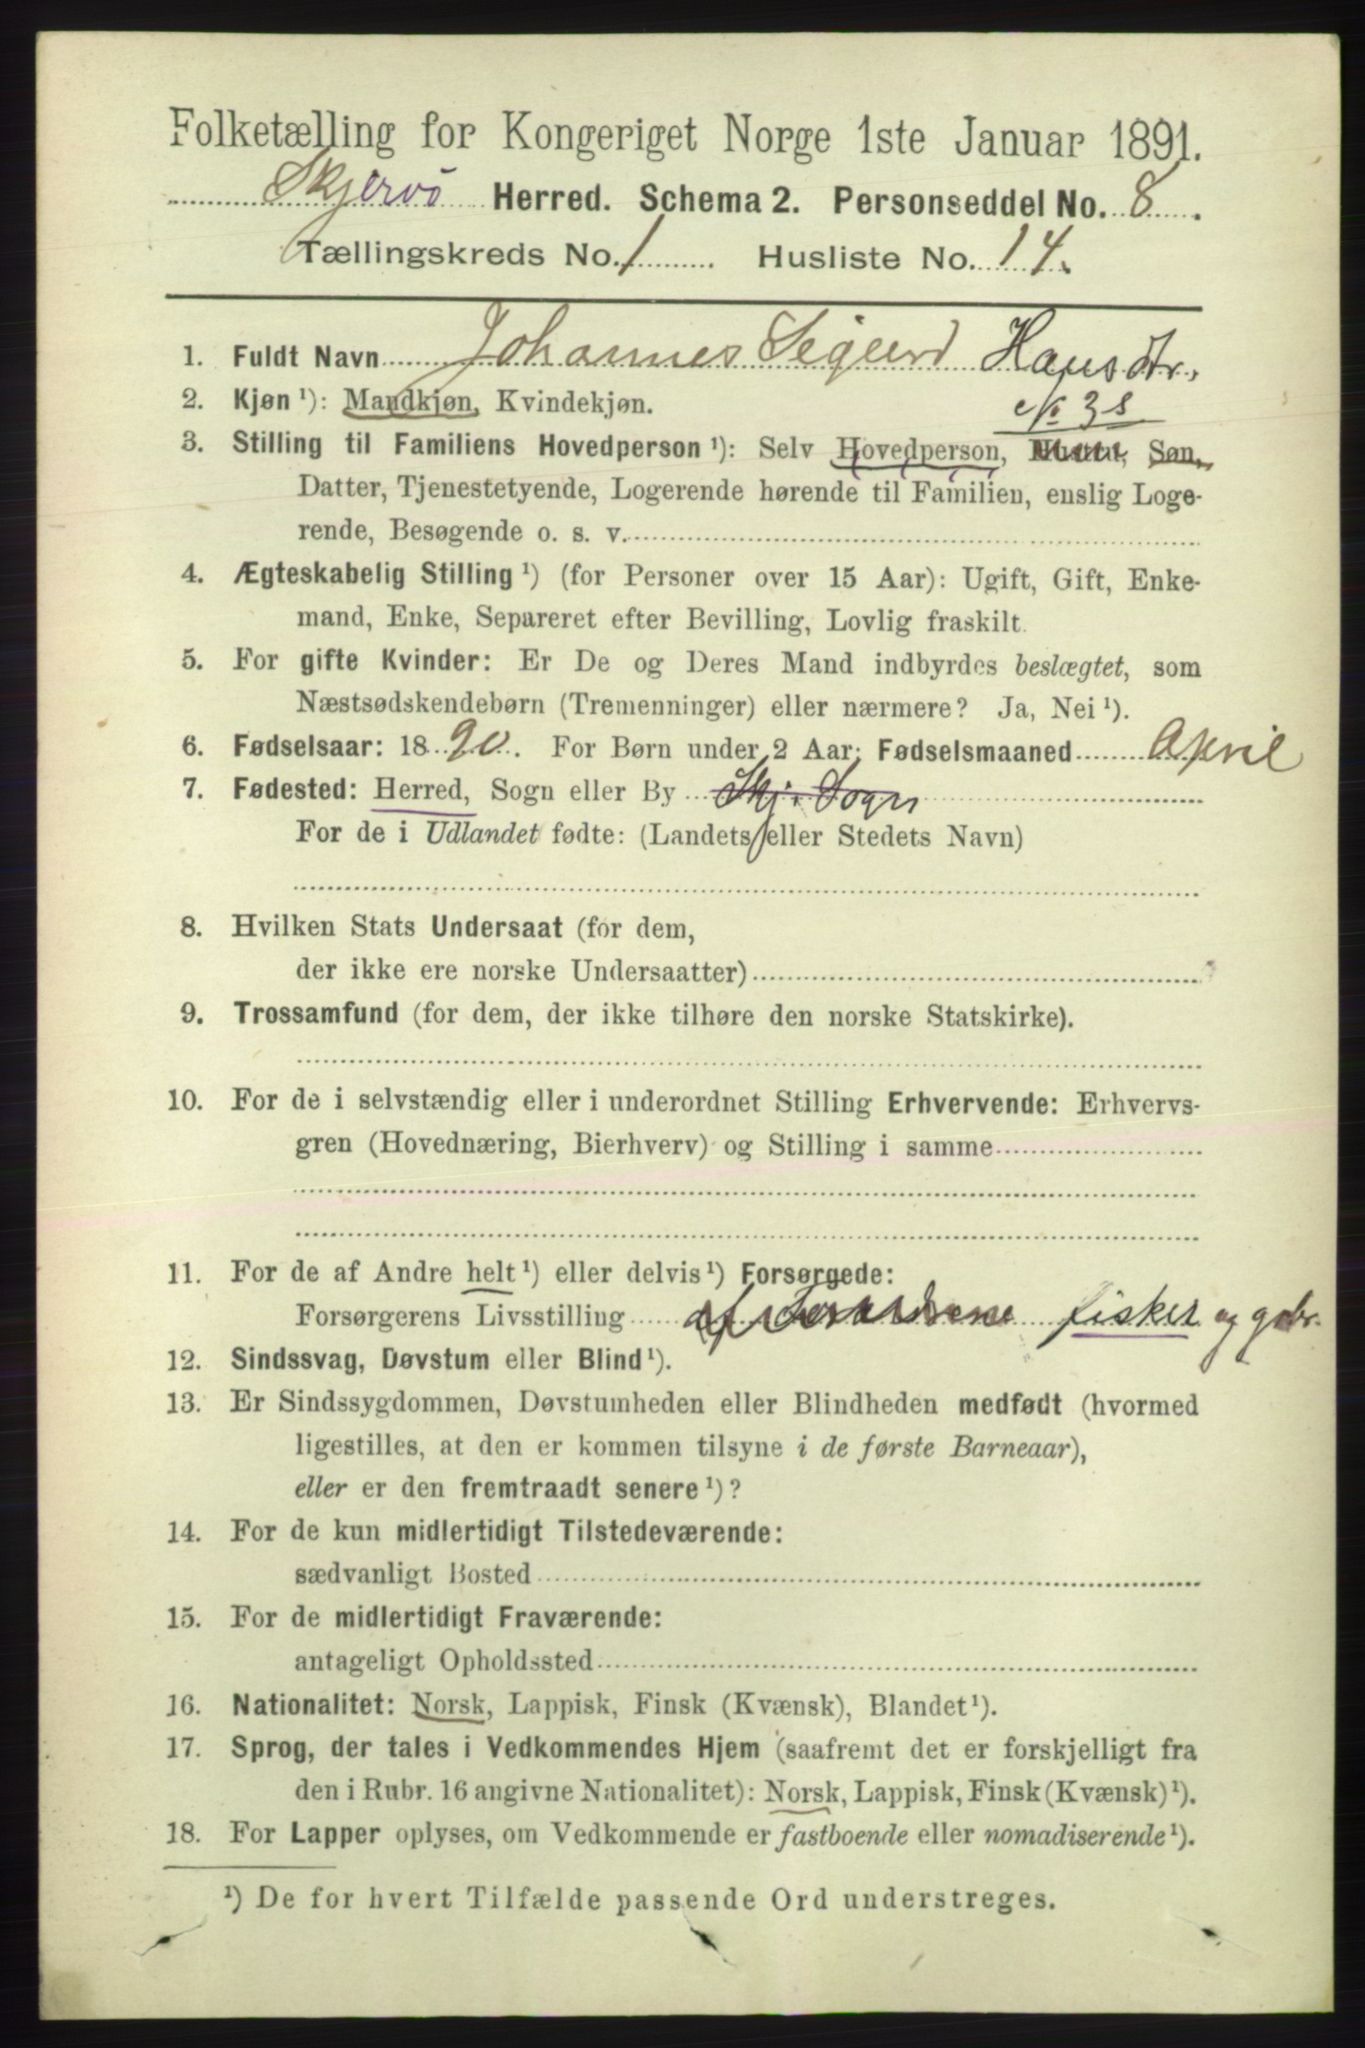 Folketælling for Kongeriget Norge 1ste Januar 1891.
Skjervö Herred. Schema 2. Personseddel No. 8.
Tællingskreds No. 1 Husliste No. 14.
1. Fuldt Navn Johannes Sigurd Hans
2. Kjøn ¹): Mandkjøn, Kvindekjøn.
3. Stilling til Familiens Hovedperson ¹): Selv Hovedperson, Hustru, Søn,
Datter, Tjenestetyende, Logerende hørende til Familien, enslig Loge-
rende, Besøgende o. s. v.
4. Ægteskabelig Stilling ¹) (for Personer over 15 Aar): Ugift, Gift, Enke-
mand, Enke, Separeret efter Bevilling, Lovlig fraskilt.
5. For gifte Kvinder: Er De og Deres Mand indbyrdes beslægtet, som
Næstsødskendebørn (Tremenninger) eller nærmere? Ja, Nei ¹).
6. Fødselsaar: 1890. For Børn under 2 Aar: Fødselsmaaned April
7. Fødested: Herred, Sogn eller By Skj. Sogn
For de i Udlandet fødte: (Landets eller Stedets Navn)
8. Hvilken Stats Undersaat (for dem,
der ikke ere norske Undersaatter)
9. Trossamfund (for dem, der ikke tilhøre den norske Statskirke).
10. For de i selvstændig eller i underordnet Stilling Erhvervende: Erhvervs-
gren (Hovednæring, Bierhverv) og Stilling i samme
11. For de af Andre helt ¹) eller delvis ¹) Forsørgede:
Forsørgerens Livsstilling af fisker og
12. Sindssvag, Døvstum eller Blind ¹).
13. Er Sindssygdommen, Døvstumheden eller Blindheden medfødt (hvormed
ligestilles, at den er kommen tilsyne i de første Barneaar),
eller er den fremtraadt senere ¹)?
14. For de kun midlertidigt Tilstedeværende:
sædvanligt Bosted
15. For de midlertidigt Fraværende:
antageligt Opholdssted
16. Nationalitet: Norsk, Lappisk, Finsk (Kvænsk), Blandet ¹).
17. Sprog, der tales i Vedkommendes Hjem (saafremt det er forskjelligt fra
den i Rubr. 16 angivne Nationalitet): Norsk, Lappisk, Finsk (Kvænsk) ¹).
18. For Lapper oplyses, om Vedkommende er fastboende eller nomadiserende ¹).
¹) De for hvert Tilfælde passende Ord understreges.